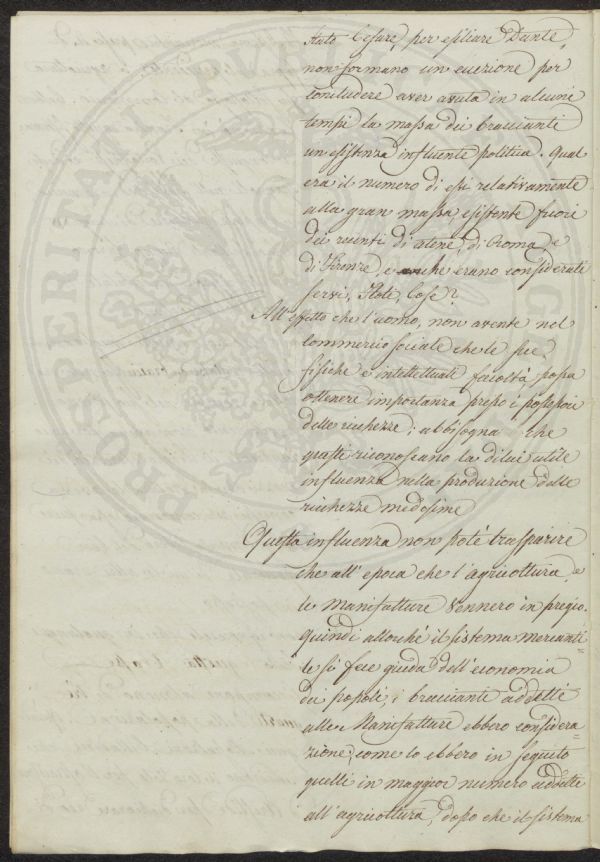 stato Cesare, per esiliare Dante,
non formano un eccezione per
concludere aver avuta in alcuni
tempi la massa dei braccianti
un esistenza influente politica. Qual
era il numero di essi relativamente
alla gran massa, esistente fuori
dei recinti di Atene, di Roma, e
di Firenze, e anche erano considerati
servi, Iloti, Cose?
All'effetto che l'uomo, non avente nel
commercio sociale che le sue
fisiche e intellettuali facoltà, possa
ottenere importanza presso i possessori
delle ricchezze; abbisogna che
questi riconoscano la dilui utile
influenza nella produzione delle
ricchezze medesime
Questa influenza non potè trasparire
che all'epoca che l'agricoltura, e
le Manifatture vennero in pregio.
Quindi allorchè il sistema mercanti=
le si fece guida dell'economia
dei popoli, i braccianti addetti
alle Manifatture ebbero considera=
zione; come lo ebbero in seguito
quelli in maggior numero addetti
all'agricoltura, dopo che il sistema
PROSPERITATI PUBLICAE